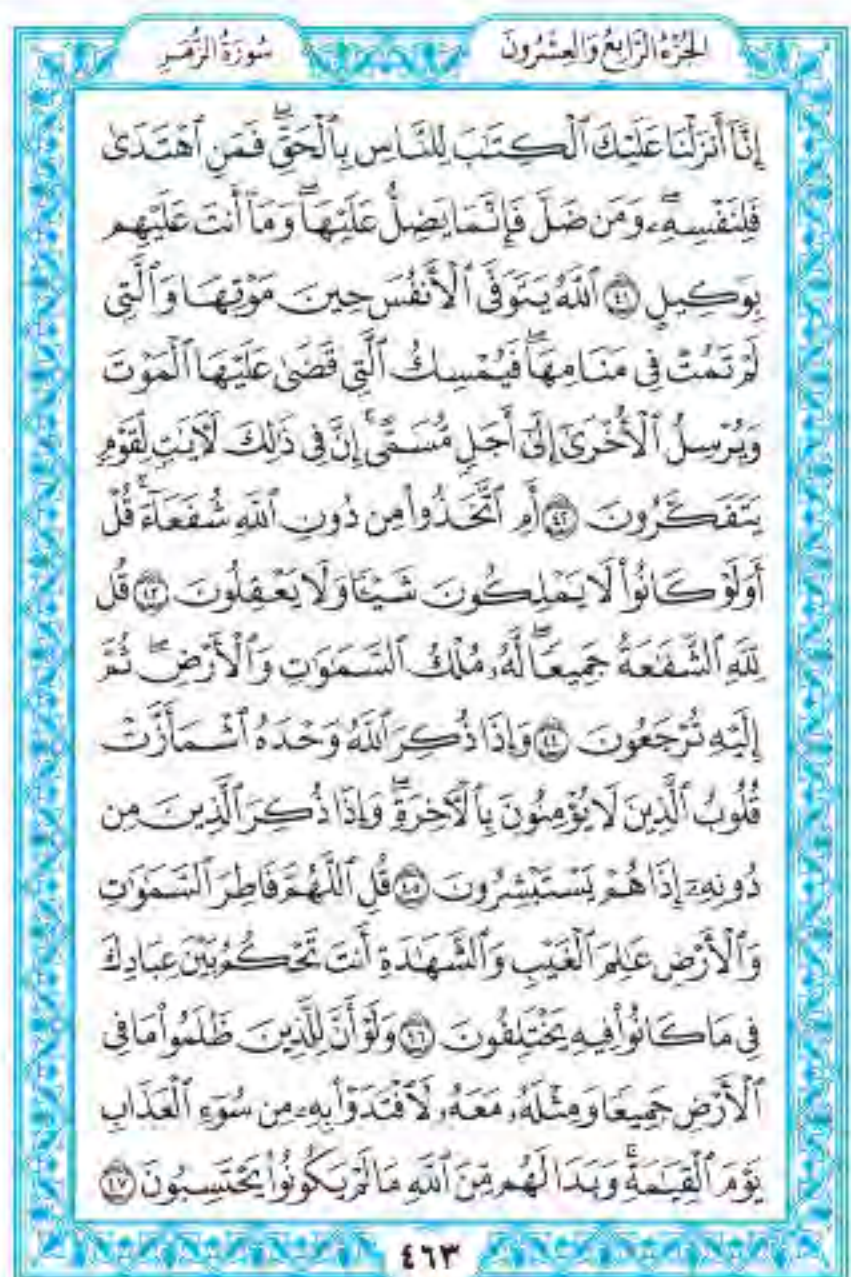 الجُزْءُ الرَّابِعُ وَالعِشْرُونَ سُورَةُ الزُّمَرِ
إِنَّآ أَنزَلْنَا عَلَيْكَ ٱلْكِتَٰبَ لِلنَّاسِ بِٱلْحَقِّۖ فَمَنِ ٱهْتَدَىٰ
فَلِنَفْسِهِۦۖ وَمَن ضَلَّ فَإِنَّمَا يَضِلُّ عَلَيْهَاۖ وَمَآ أَنتَ عَلَيْهِم
بِوَكِيلٍ ٤١ ٱللَّهُ يَتَوَفَّى ٱلْأَنفُسَ حِينَ مَوْتِهَا وَٱلَّتِي
لَمْ تَمُتْ فِي مَنَامِهَاۖ فَيُمْسِكُ ٱلَّتِي قَضَىٰ عَلَيْهَا ٱلْمَوْتَ
وَيُرْسِلُ ٱلْأُخْرَىٰٓ إِلَىٰٓ أَجَلٍ مُّسَمًّىۚ إِنَّ فِي ذَٰلِكَ لَأٓيَٰتٍ لِّقَوْمٍ
يَتَفَكَّرُونَ ٤٢ أَمِ ٱتَّخَذُواْ مِن دُونِ ٱللَّهِ شُفَعَآءَۚ قُلْ
أَوَلَوْ كَانُواْ لَا يَمْلِكُونَ شَيْـًٔا وَلَا يَعْقِلُونَ ٤٣ قُل
لِّلَّهِ ٱلشَّفَٰعَةُ جَمِيعًاۖ لَّهُۥ مُلْكُ ٱلسَّمَٰوَٰتِ وَٱلْأَرْضِۖ ثُمَّ
إِلَيْهِ تُرْجَعُونَ ٤٤ وَإِذَا ذُكِرَ ٱللَّهُ وَحْدَهُ ٱشْمَأَزَّتْ
قُلُوبُ ٱلَّذِينَ لَا يُؤْمِنُونَ بِٱلْأٓخِرَةِۖ وَإِذَا ذُكِرَ ٱلَّذِينَ مِن
دُونِهِۦٓ إِذَا هُمْ يَسْتَبْشِرُونَ ٤٥ قُلِ ٱللَّهُمَّ فَاطِرَ ٱلسَّمَٰوَٰتِ
وَٱلْأَرْضِ عَٰلِمَ ٱلْغَيْبِ وَٱلشَّهَٰدَةِ أَنتَ تَحْكُمُ بَيْنَ عِبَادِكَ
فِي مَا كَانُواْ فِيهِ يَخْتَلِفُونَ ٤٦ وَلَوْ أَنَّ لِلَّذِينَ ظَلَمُواْ مَا فِي
ٱلْأَرْضِ جَمِيعًا وَمِثْلَهُۥ مَعَهُۥ لَٱفْتَدَوْاْ بِهِۦ مِن سُوٓءِ ٱلْعَذَابِ
يَوْمَ ٱلْقِيَٰمَةِۚ وَبَدَا لَهُم مِّنَ ٱللَّهِ مَا لَمْ يَكُونُواْ يَحْتَسِبُونَ ٤٧
٤٦٣